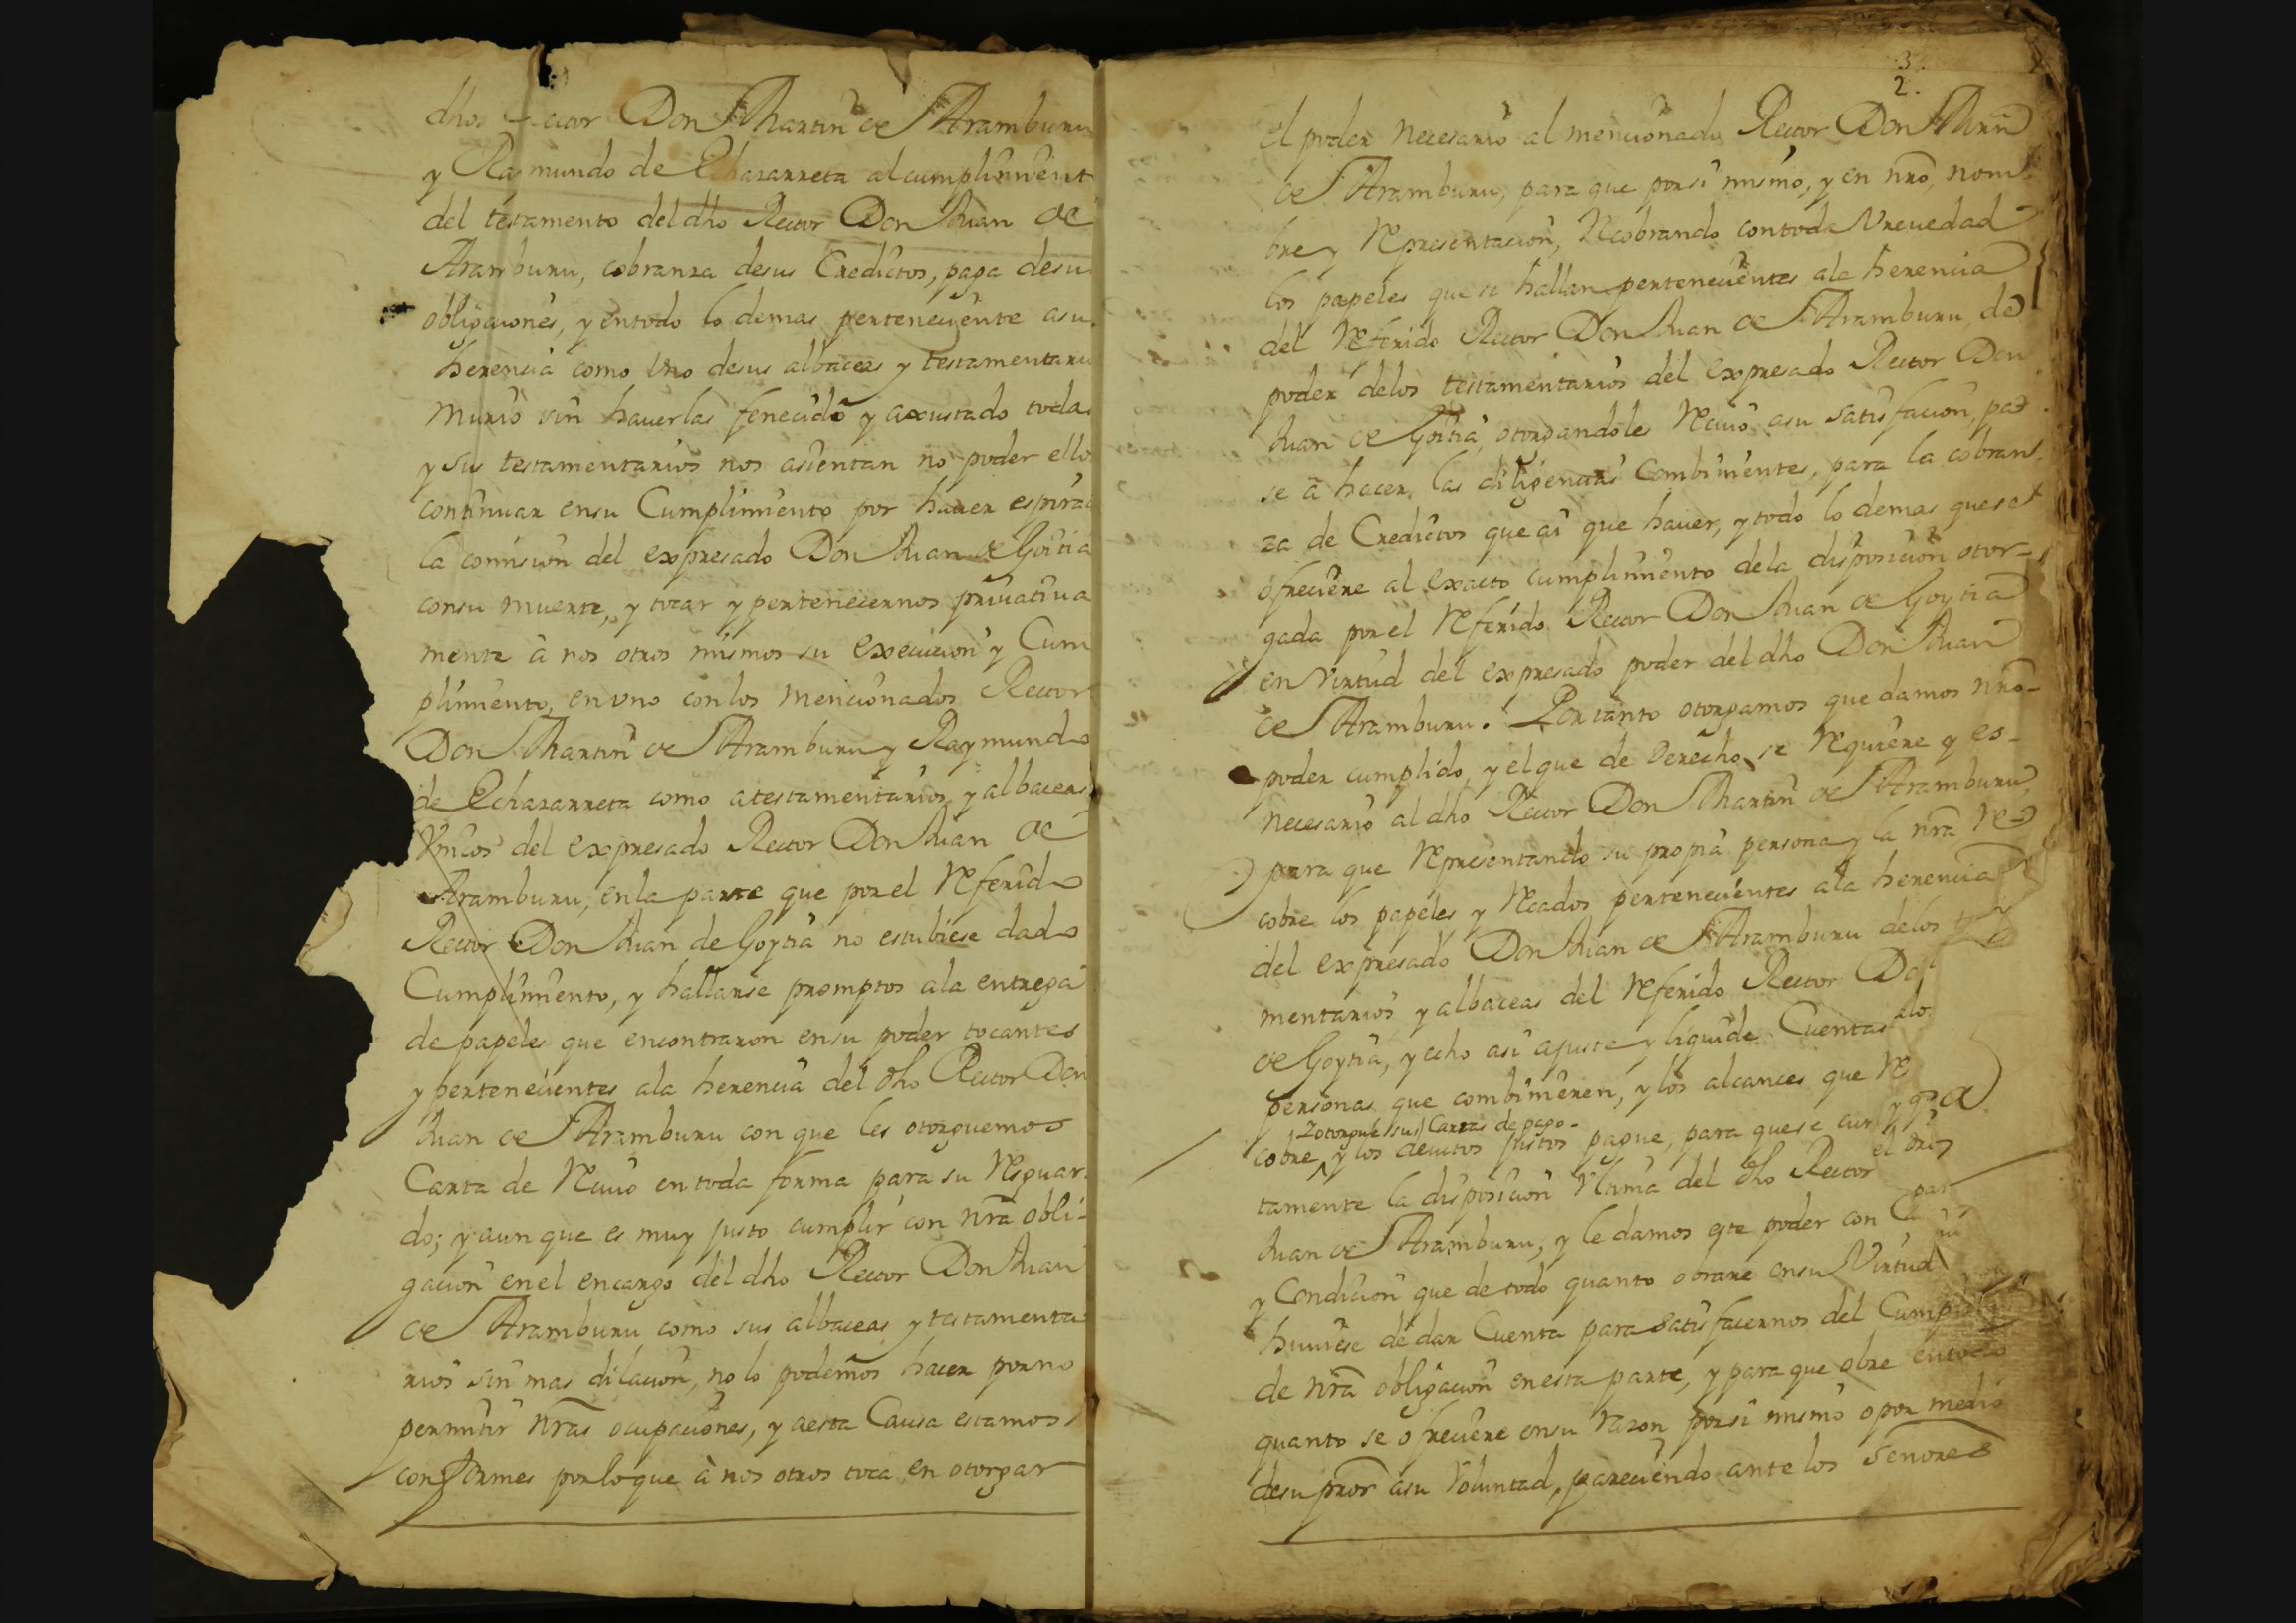 dhos Rector Don Martin de Aramburu
y Raimundo de Echazarreta al cumplimient
del testamento del dho Rector Don Juan de
Aramburu, cobranza desus Credictos, paga desu
obligaciones, y entodo lo demas perteneciente asu
herencia como Uno desus albaceas y testamentario
Murio sin hauerlas fenecido y axustado todas
y sus testamentarios nos asientan no poder ello
continuar ensu Cumplimiento por hauer espirad
la comision del expresado Don Juan de Goitia
consu muerte, y tocar y pertenecernos priuatiua
mente â nos otros mismos su execucion y Cum
plimiento, en vno conlos mencionados Rector
Don Martin de Aramburu y Raymundo
de Echazarreta como atestamentarios y albaceas
Vnicos del expresado Rector Don Juan de
Aramburu, enla parte que por el Referido
Rector Don Juan de Goytia no estubiese dado
Cumplimiento, y hallarse promptos ala entrega
de papeles que encontraron ensu poder tocantes
y pertenecientes ala herencia del dho Rector Don
Juan de Aramburu con que les otorguemos
Carta de Reciuo en toda forma para su Resguar
do; y aun que es muy justo cumplir con nra obli-
gacion enel encargo del dho Rector Don Juan
de Aramburu como sus albaceas y testamenta
rios sin mas dilacion, no lo podemos hacer por no
permitir nras ocupaciones, y aesta Causa estamos
conformes porloque à nos otros toca en otorgar
3
2.
el poder necesario al mencionado Rector Don Mrn
de Aramburu, para que porsi mismo, y en nro, nom-
bre y Representacion, Recobrando contoda Vreuedad
los papeles que se hallan pertenecientes ala herencia
del Referido Rector Don Juan de Aramburu, de
poder delos testamentarios del expresado Rector Don
Juan de Goitia, otorgandoles Reciuo asu satisfacion, pa
se â hacer las diligencias Combinientes, para la cobran
za de Credictos que asi que hauer, y todo lo demas quese
ofreciere al exacto cumplimiento dela disposicion otor-
gada por el Referido Rector Don Juan de Goytia
en Virtud del expresado poder del dho Don Juan
de Aramburu. Por tanto otorgamos que damos nro-
poder cumplido, y el que de Derecho se Requiere y es-
necesario al dho Rector Don Martin de Aramburu,
para que Representando su propia persona y la nra Re
cobre los papeles y Recados pertenecientes ala herencia
del expresado Don Juan de Aramburu delos
mentarios y albaceas del Referido Rector
de Goytia, y echo asi ajuste y liquide Cuentas
personas que combinieren, y los alcances que Re
Zotorgue sus Cartas de pago-
cobre, y los deuitos justos pague, para quese
tamente la disposicion Vltima del dho Rector
Juan de Aramburu, y le damos este poder con
y Condicion que de todo quanto obrare ensu Virtud
huuiese de dar Cuenta para satisfacernos del
de nra obligacion enesta parte, y para que obre entodo
quanto se ofreciere ensu razon porsi mismo o por medio
desu pror asu Voluntad, pareciendo ante los Señores